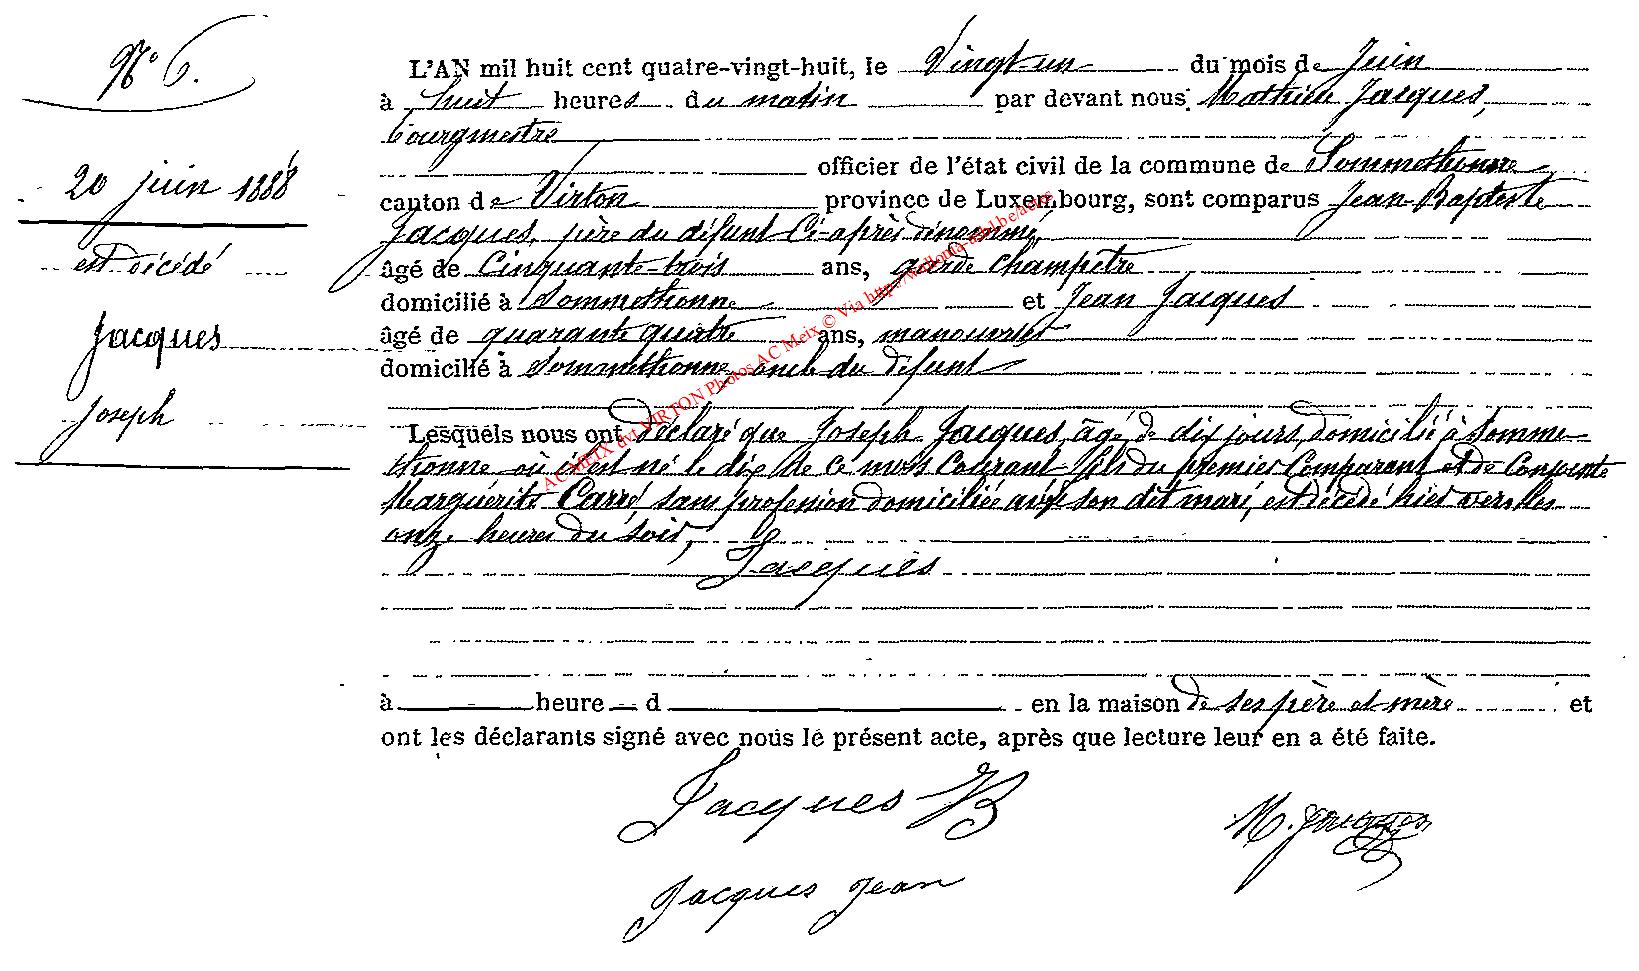 N° 6.
20 juin 1888
est décédé
Jacques
Joseph
L'AN mil huit cent quatre-vingt-huit, le Vingt-un du mois de Juin
à huit heures du matin par devant nous Mathieu Jacques,
bourgmestre
officier de l'état civil de la commune de Sommethonne
canton de Virton province de Luxembourg, sont comparus Jean-Baptiste
Jacques, père du défunt Ci-après dénommé,
âgé de Cinquante-trois ans, garde champêtre
domicilié à Sommethonne et Jean Jacques
âgé de quarante quatre ans, manouvrier
domicilié à Sommethonne oncle du défunt
Lesquels nous ont déclaré que Joseph Jacques, âgé de dix jours, domicilié à Somme-
thonne où il est né le dix de ce mois courant fils du premier Comparant et de
Marguérite Carré, sans profession domiciliée avec son dit mari, est décédé hier vers les
onze heures du soir,
Jacques
à heure d en la maison de ses père et mère et
ont les déclarants signé avec nous le présent acte, après que lecture leur en a été faite.
Jacques JB
M. Jacques
Jacques Jean
AC MEIX dvt VIRTON Photos AC Meix © Via http://wallonia-asbl.be/actes